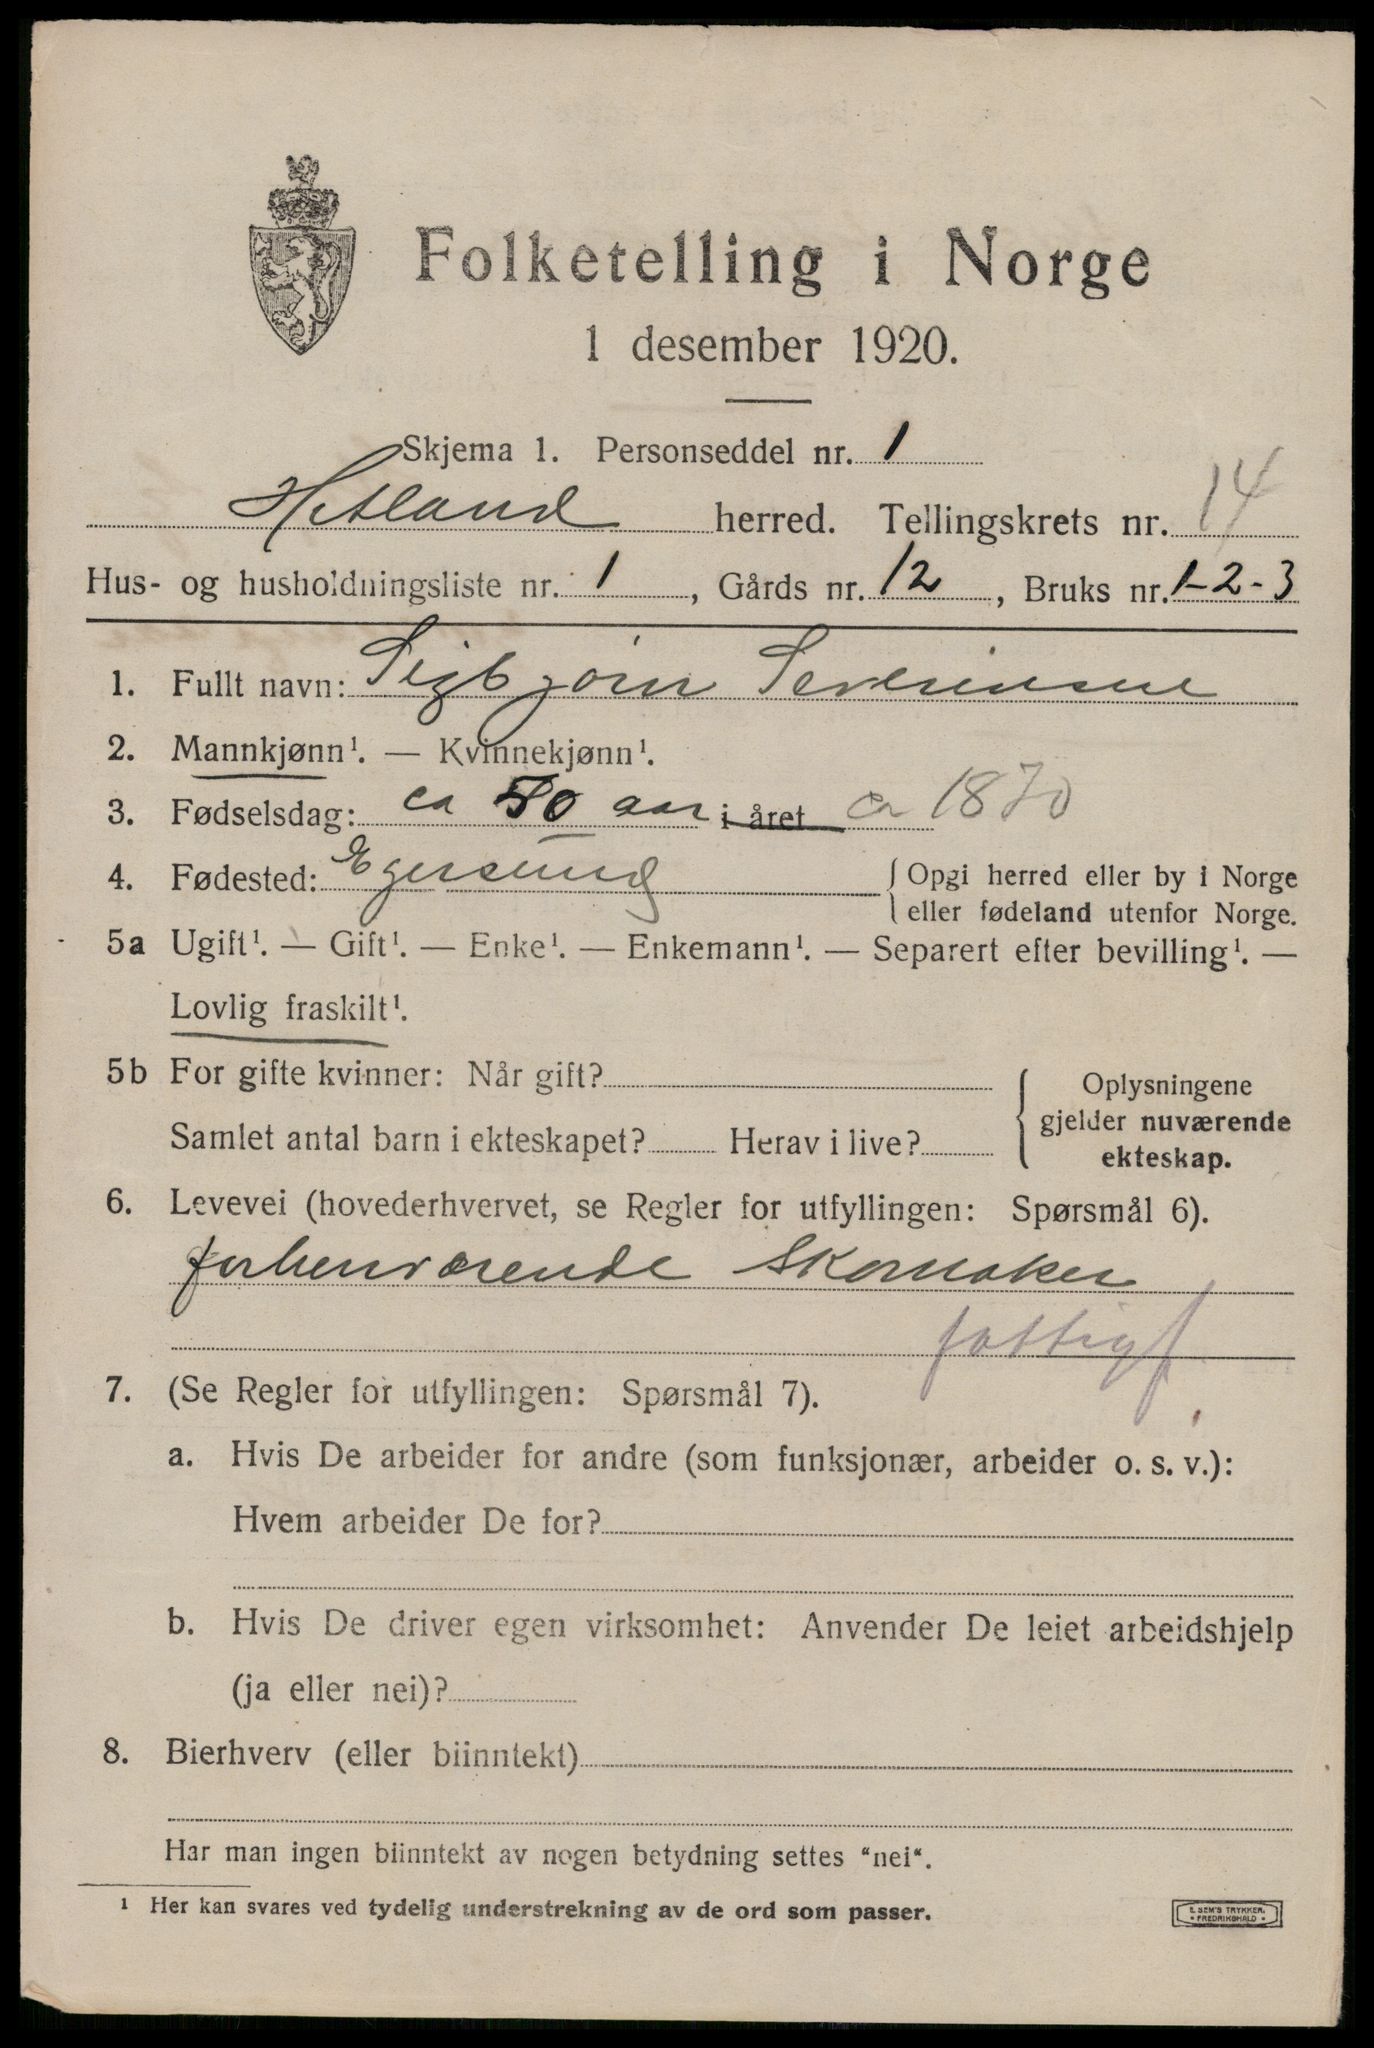 Folketelling i Norge
1 desember 1920.
Skjema 1. Personseddel nr. 1
Hetland herred. Tellingskrets nr. 14
Hus- og husholdningsliste nr. 1, Gårds nr. 12, Bruks nr. 1-2-3
1. Fullt navn: Sigbjørn Severinsen
2. Mannkjønn¹. — Kvinnekjønn¹.
3. Fødselsdag: ca 50 aar i året ca 1870
4. Fødested: Egersund { Opgi herred eller by i Norge
eller fødeland utenfor Norge.
5a Ugift¹. — Gift¹. — Enke¹. — Enkemann¹. — Separert efter bevilling¹. —
Lovlig fraskilt¹.
5b For gifte kvinner: Når gift?
Samlet antal barn i ekteskapet? Herav i live?
Oplysningene
gjelder nuværende
ekteskap.
6. Levevei (hovederhvervet, se Regler for utfyllingen: Spørsmål 6).
forhenværende Skomaker
fattigf
7. (Se Regler for utfyllingen: Spørsmål 7).
a. Hvis De arbeider for andre (som funksjonær, arbeider o. s. v.):
Hvem arbeider De for?
b. Hvis De driver egen virksomhet: Anvender De leiet arbeidshjelp
(ja eller nei)?
8. Bierhverv (eller biinntekt)
Har man ingen biinntekt av nogen betydning settes "nei".
¹ Her kan svares ved tydelig understrekning av de ord som passer.
E. SEM'S TRYKKER.
• FREDRIKSHALD •